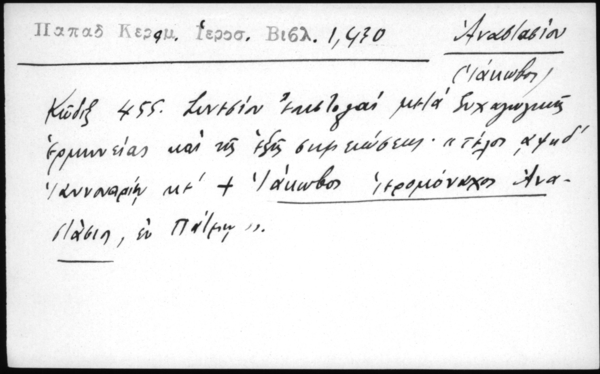 Παπαδ Κεραμ. Ιεροσ. Βιβλ. 1,430 Ἀναστασίου
(Ἰάκωβος)
Κῶδιξ 455. Συνεσίου ἐπιστολαί μετά ψυχαγωγικῆς
ἑρμηνείας καί τῆς ἑξῆς σημειώσεως· «τέλος αψκδ'
Ἰαννουαρίῳ κε' + Ἰάκωβος ἱερομόναχος Ἀνα-
στάσιος, ἐν Πάτμῳ».